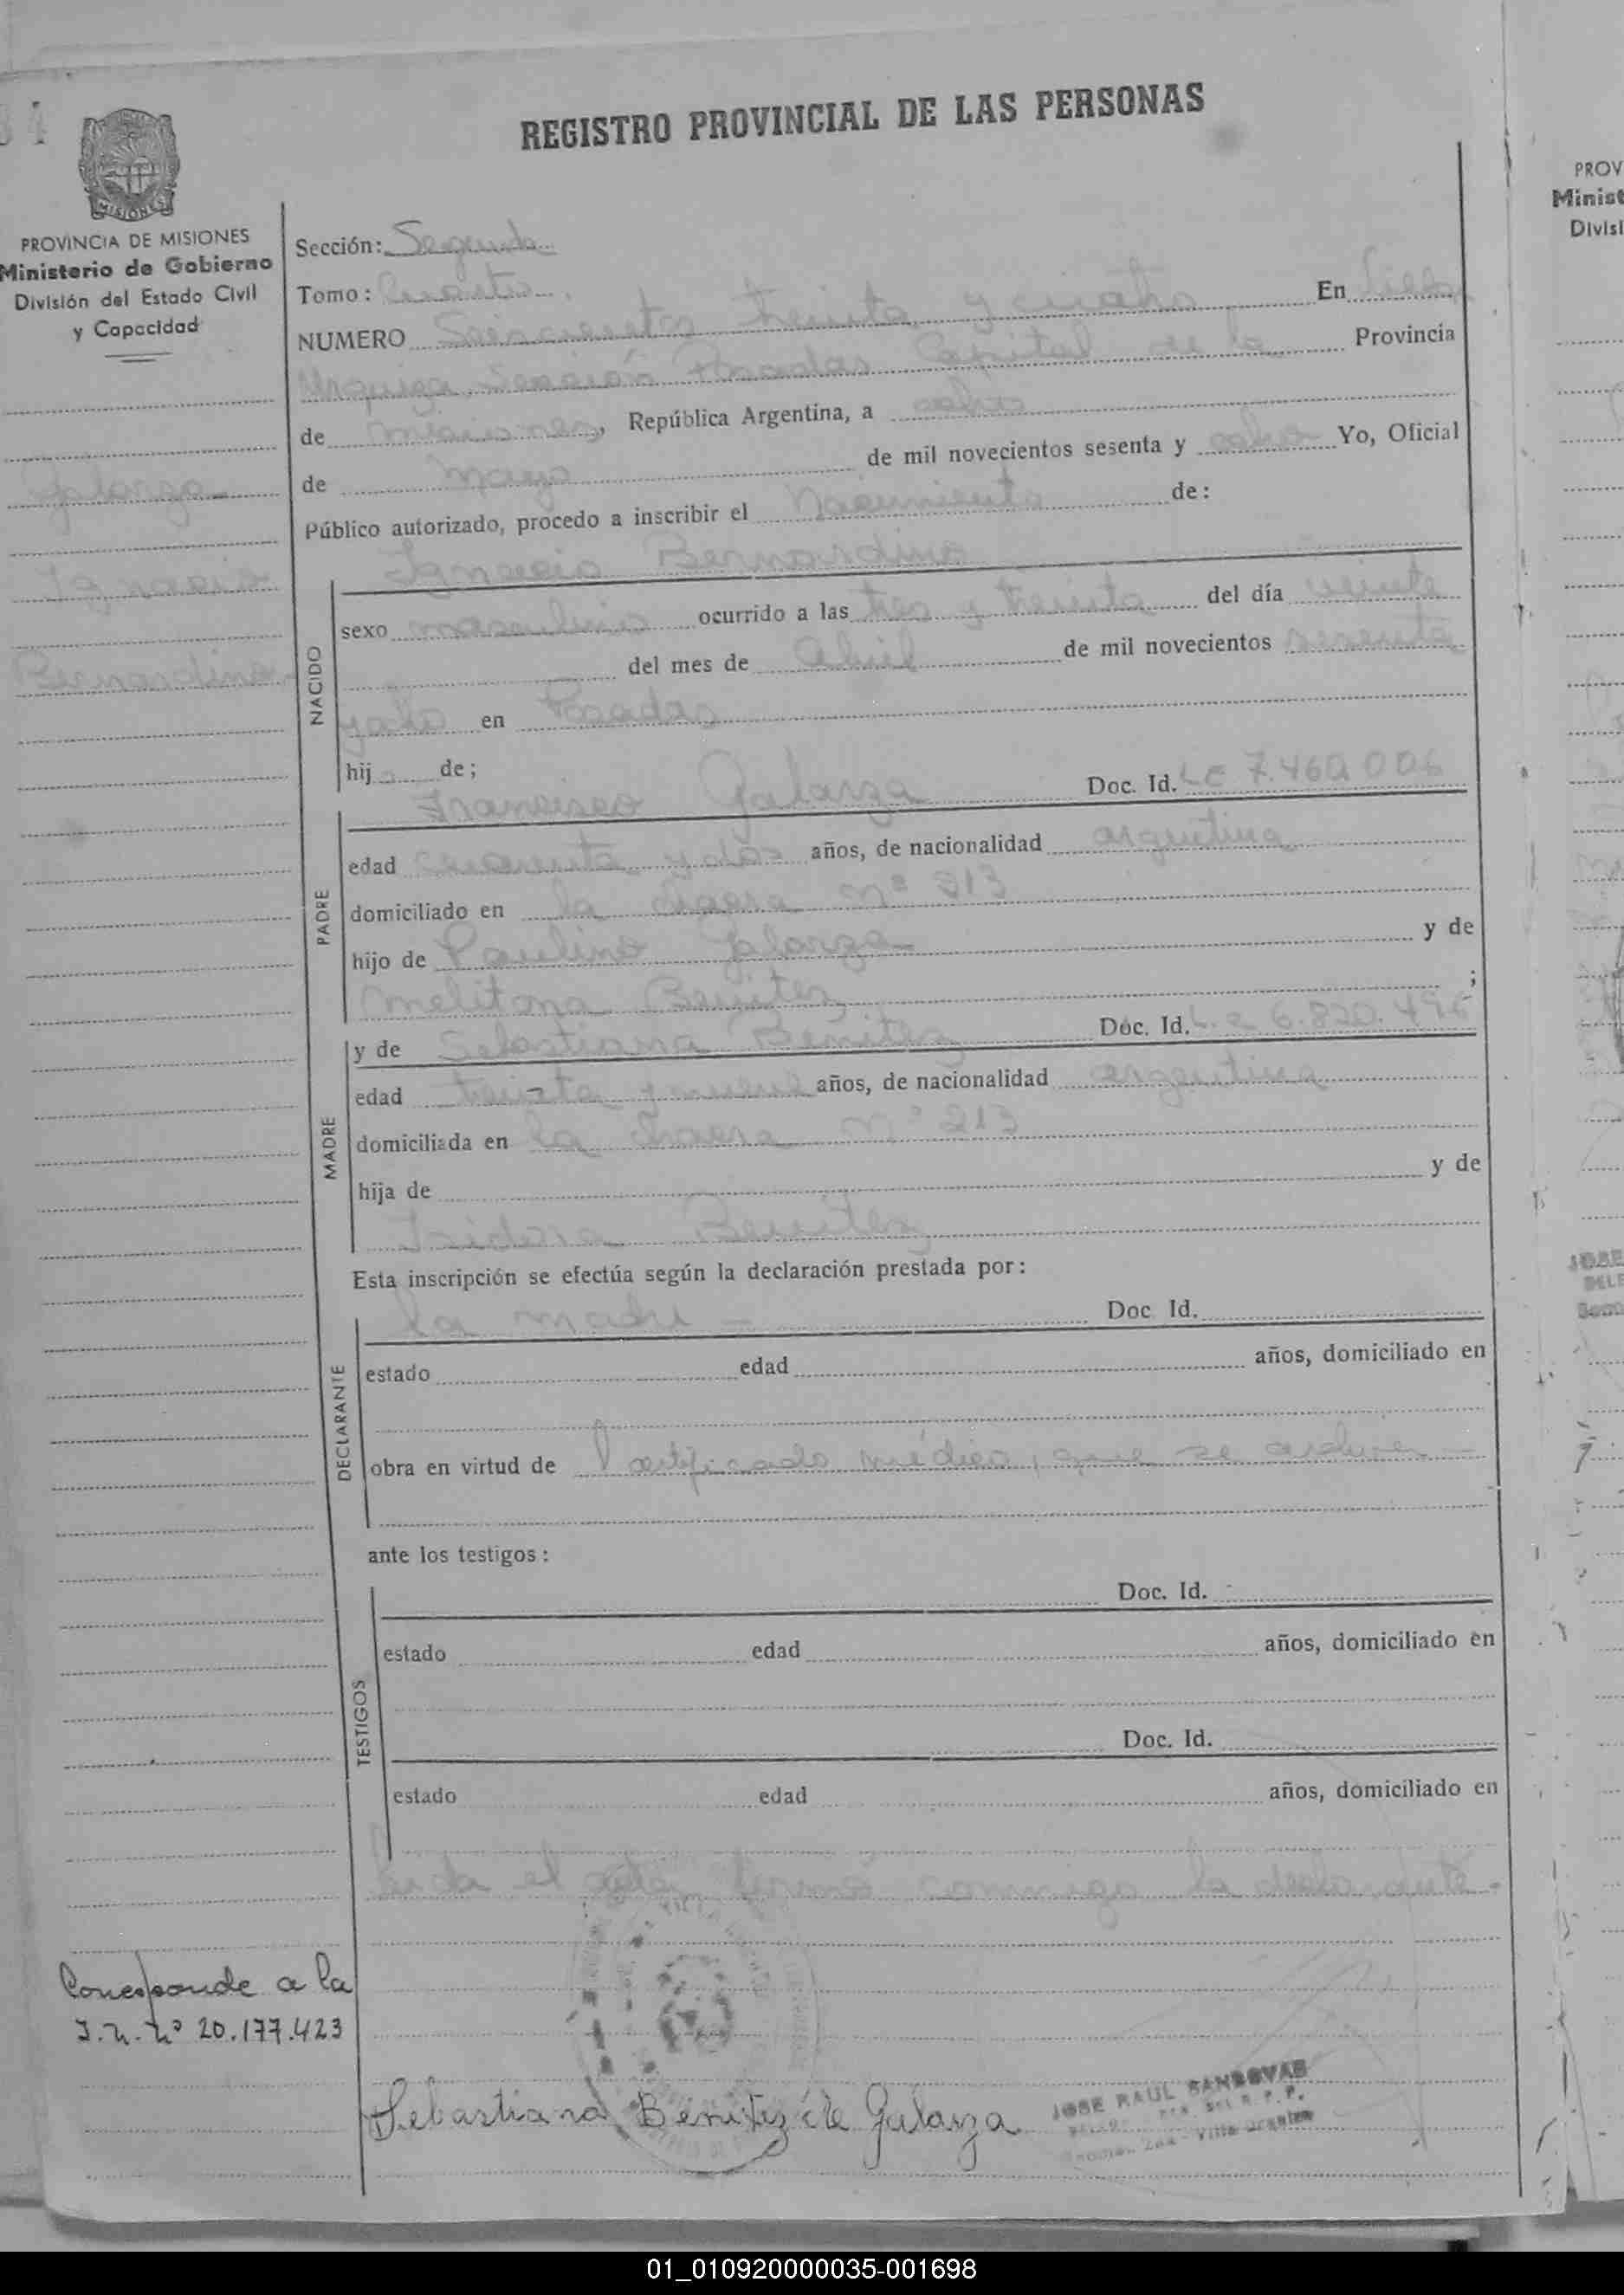 REGISTRO PROVINCIAL DE LAS PERSONAS
MISIONES
PROVINCIA DE MISIONES
Ministerio de Gobierno
División del Estado Civil
y Capacidad
Galarza
Ignacio
Bernardino
Sección: Segunda
Tomo: Cuarto
NUMERO Seiscientos treinta y cuatro En Villa
Urquiza, Sección Posadas Capital de la Provincia
de Misiones, República Argentina, a ocho
de Mayo de mil novecientos sesenta y ocho Yo, Oficial
Público autorizado, procedo a inscribir el Nacimiento de:
Ignacio Bernardino
NACIDO
sexo masculino ocurrido a las tres y treinta del día veinte
del mes de Abril de mil novecientos sesenta
y ocho en Posadas
hijo de;
Francisco Galarza Doc. Id. L E 7.460.006
PADRE
edad cuarenta y dos años, de nacionalidad argentina
domiciliado en la chacra Nº 213
hijo de Paulino Galarza y de
Melitona Benitez ;
y de Sebastiana Benitez Doc. Id. L. C 6.820.495
MADRE
edad treinta y nueve años, de nacionalidad argentina
domiciliada en la chacra Nº 213
hija de y de
Isidora Benitez
Esta inscripción se efectúa según la declaración prestada por:
la madre - Doc Id.
DECLARANTE
estado edad años, domiciliado en
obra en virtud de Certificado médico, que se archiva -
ante los testigos:
Doc. Id.
TESTIGOS
estado edad años, domiciliado en
Doc. Id.
estado edad años, domiciliado en
Leida el acta, firmó conmigo la declarante.
Corresponde a la
I.N. Nº 20.177.423
Sebastiana Benitez de Galarza
JOSE RAUL SANDOVAL
Villa Urquiza
PROV
Minist
Divisi
JOSE
DELE
01_010920000035-001698